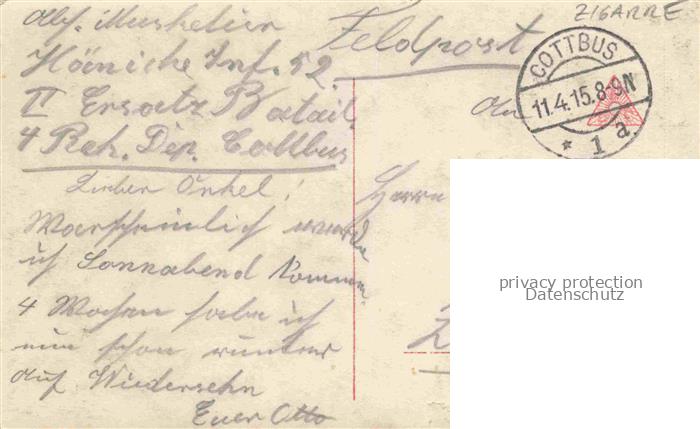 Abs. Musketier
Hönicke Inf. 52.
II Ersatz Batail.
4 Rek. Dep. Cottbus
Feldpost
ZIGARRE
COTTBUS
11.4.15.8-9N
* 1 a.
An
Herrn
Lieber Onkel!
Warscheinlich werde
ich Sonnabend kommen.
4 Wochen habe ich
nun schon runter
auf Wiedersehn
Euer Otto
privacy protection
Datenschutz